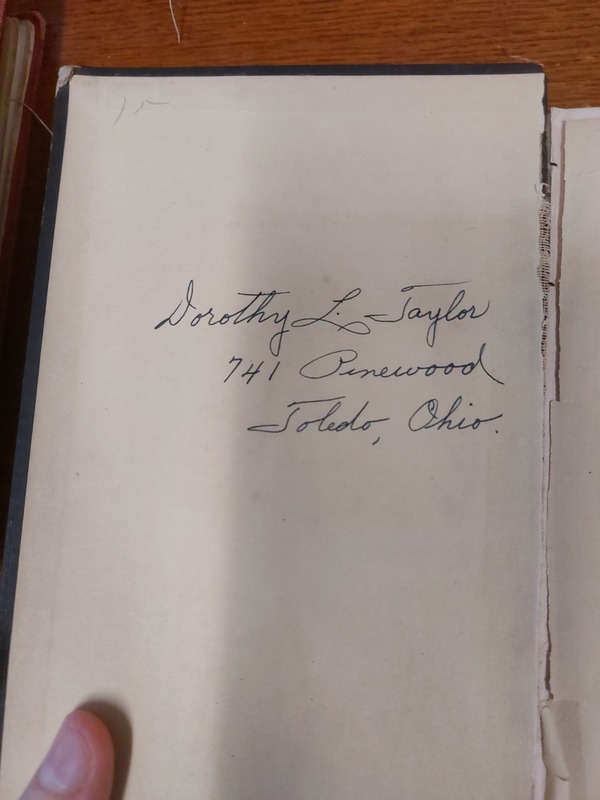 Dorothy L. Taylor
741 Pinewood
Toledo, Ohio.